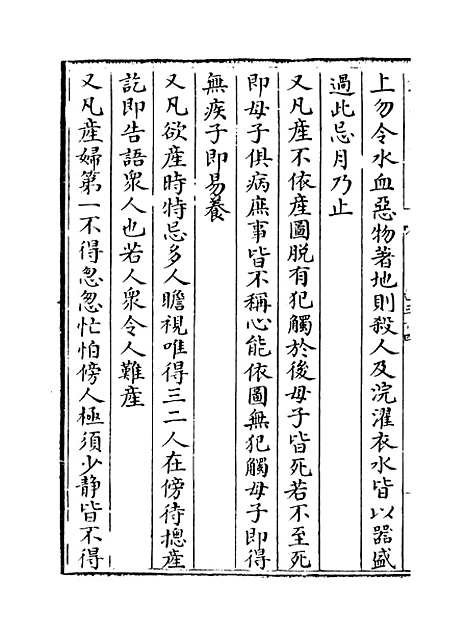 上勿令水血惡物著地則殺人及浣濯衣水皆以器盛
過此忌月乃止
又凡產不依產圖脱有犯觸於後母子皆死若不至死
即母子俱病庶事皆不稱心能依圖無犯觸母子即得
無疾子即易養
又凡欲產時特忌多人瞻視唯得三二人在傍待摠產
訖即告語衆人也若人衆令人難產
又凡產婦第一不得忽忽忙怕傍人極須少静皆不得